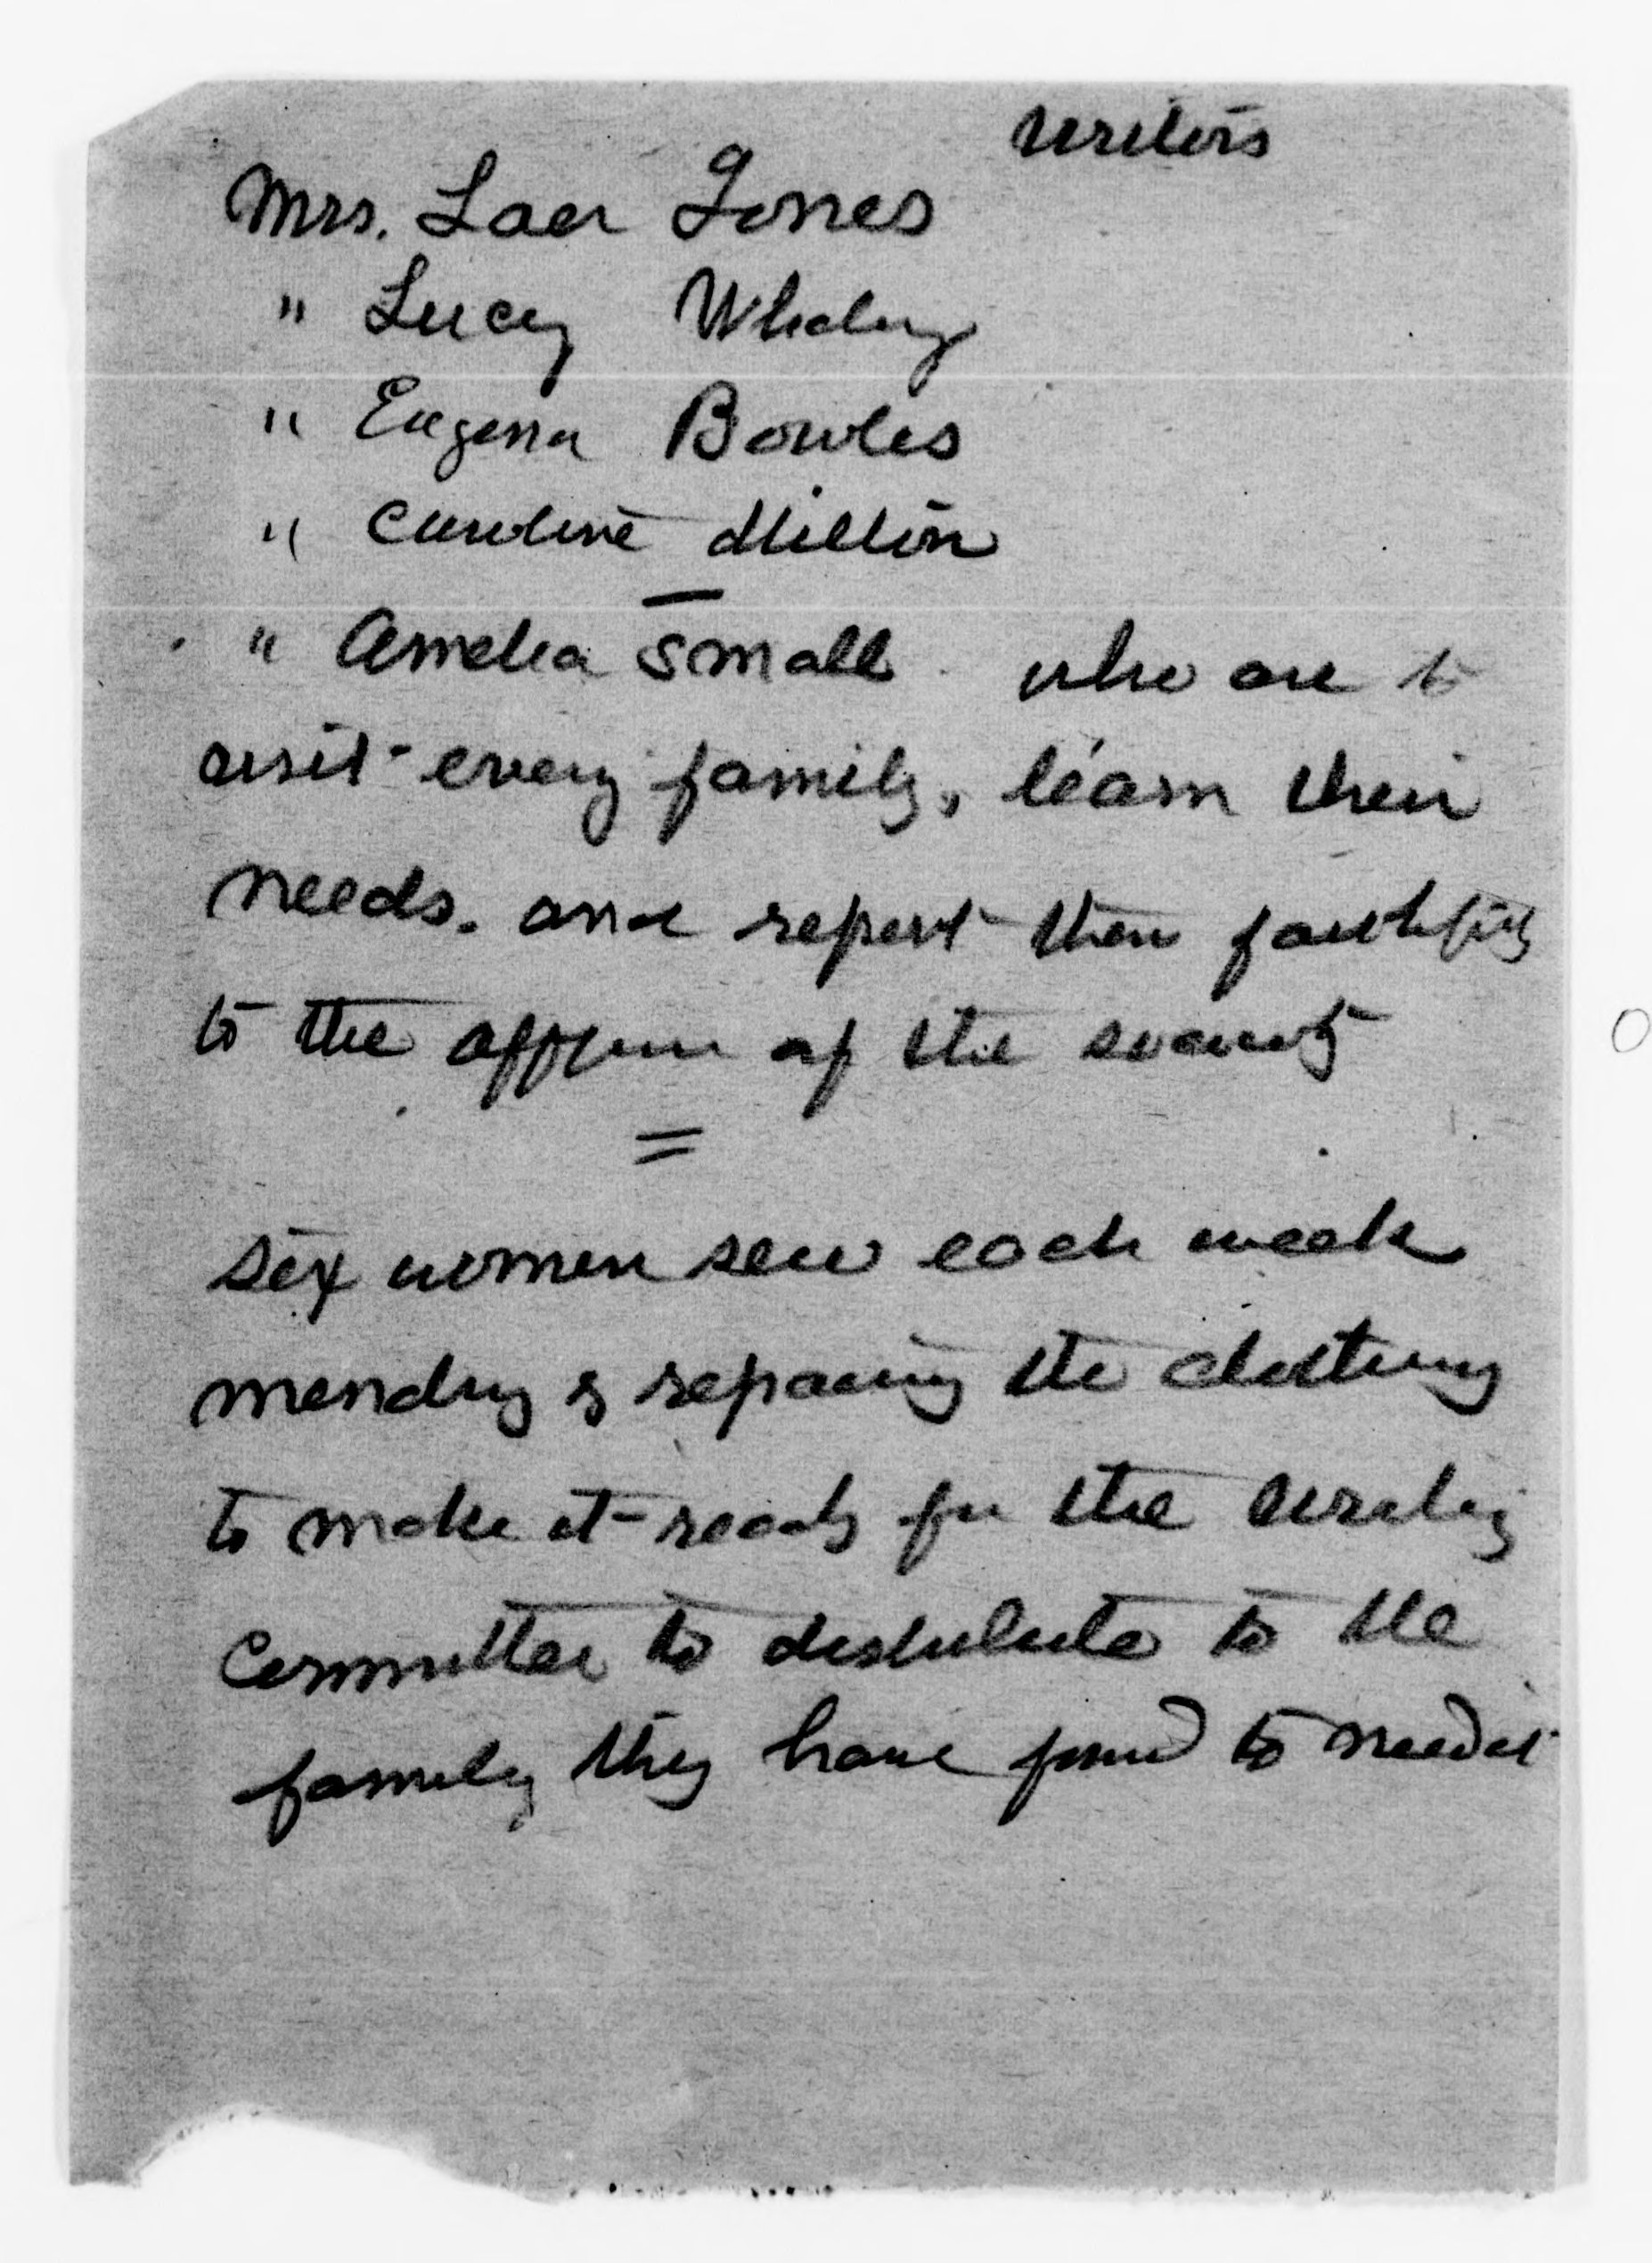 visitors
Mrs. Jones
" Lucy Whaley
" Eugena Bowles
" Caroline Million
" Amelia Small who are to
visit every family, learn their
needs. and report them faithfully
to the officers of the society
=
Six women sew each week
mending & repairing the clothing
to make it ready for the visiting
Committee to distribute to the
family they have found to need it